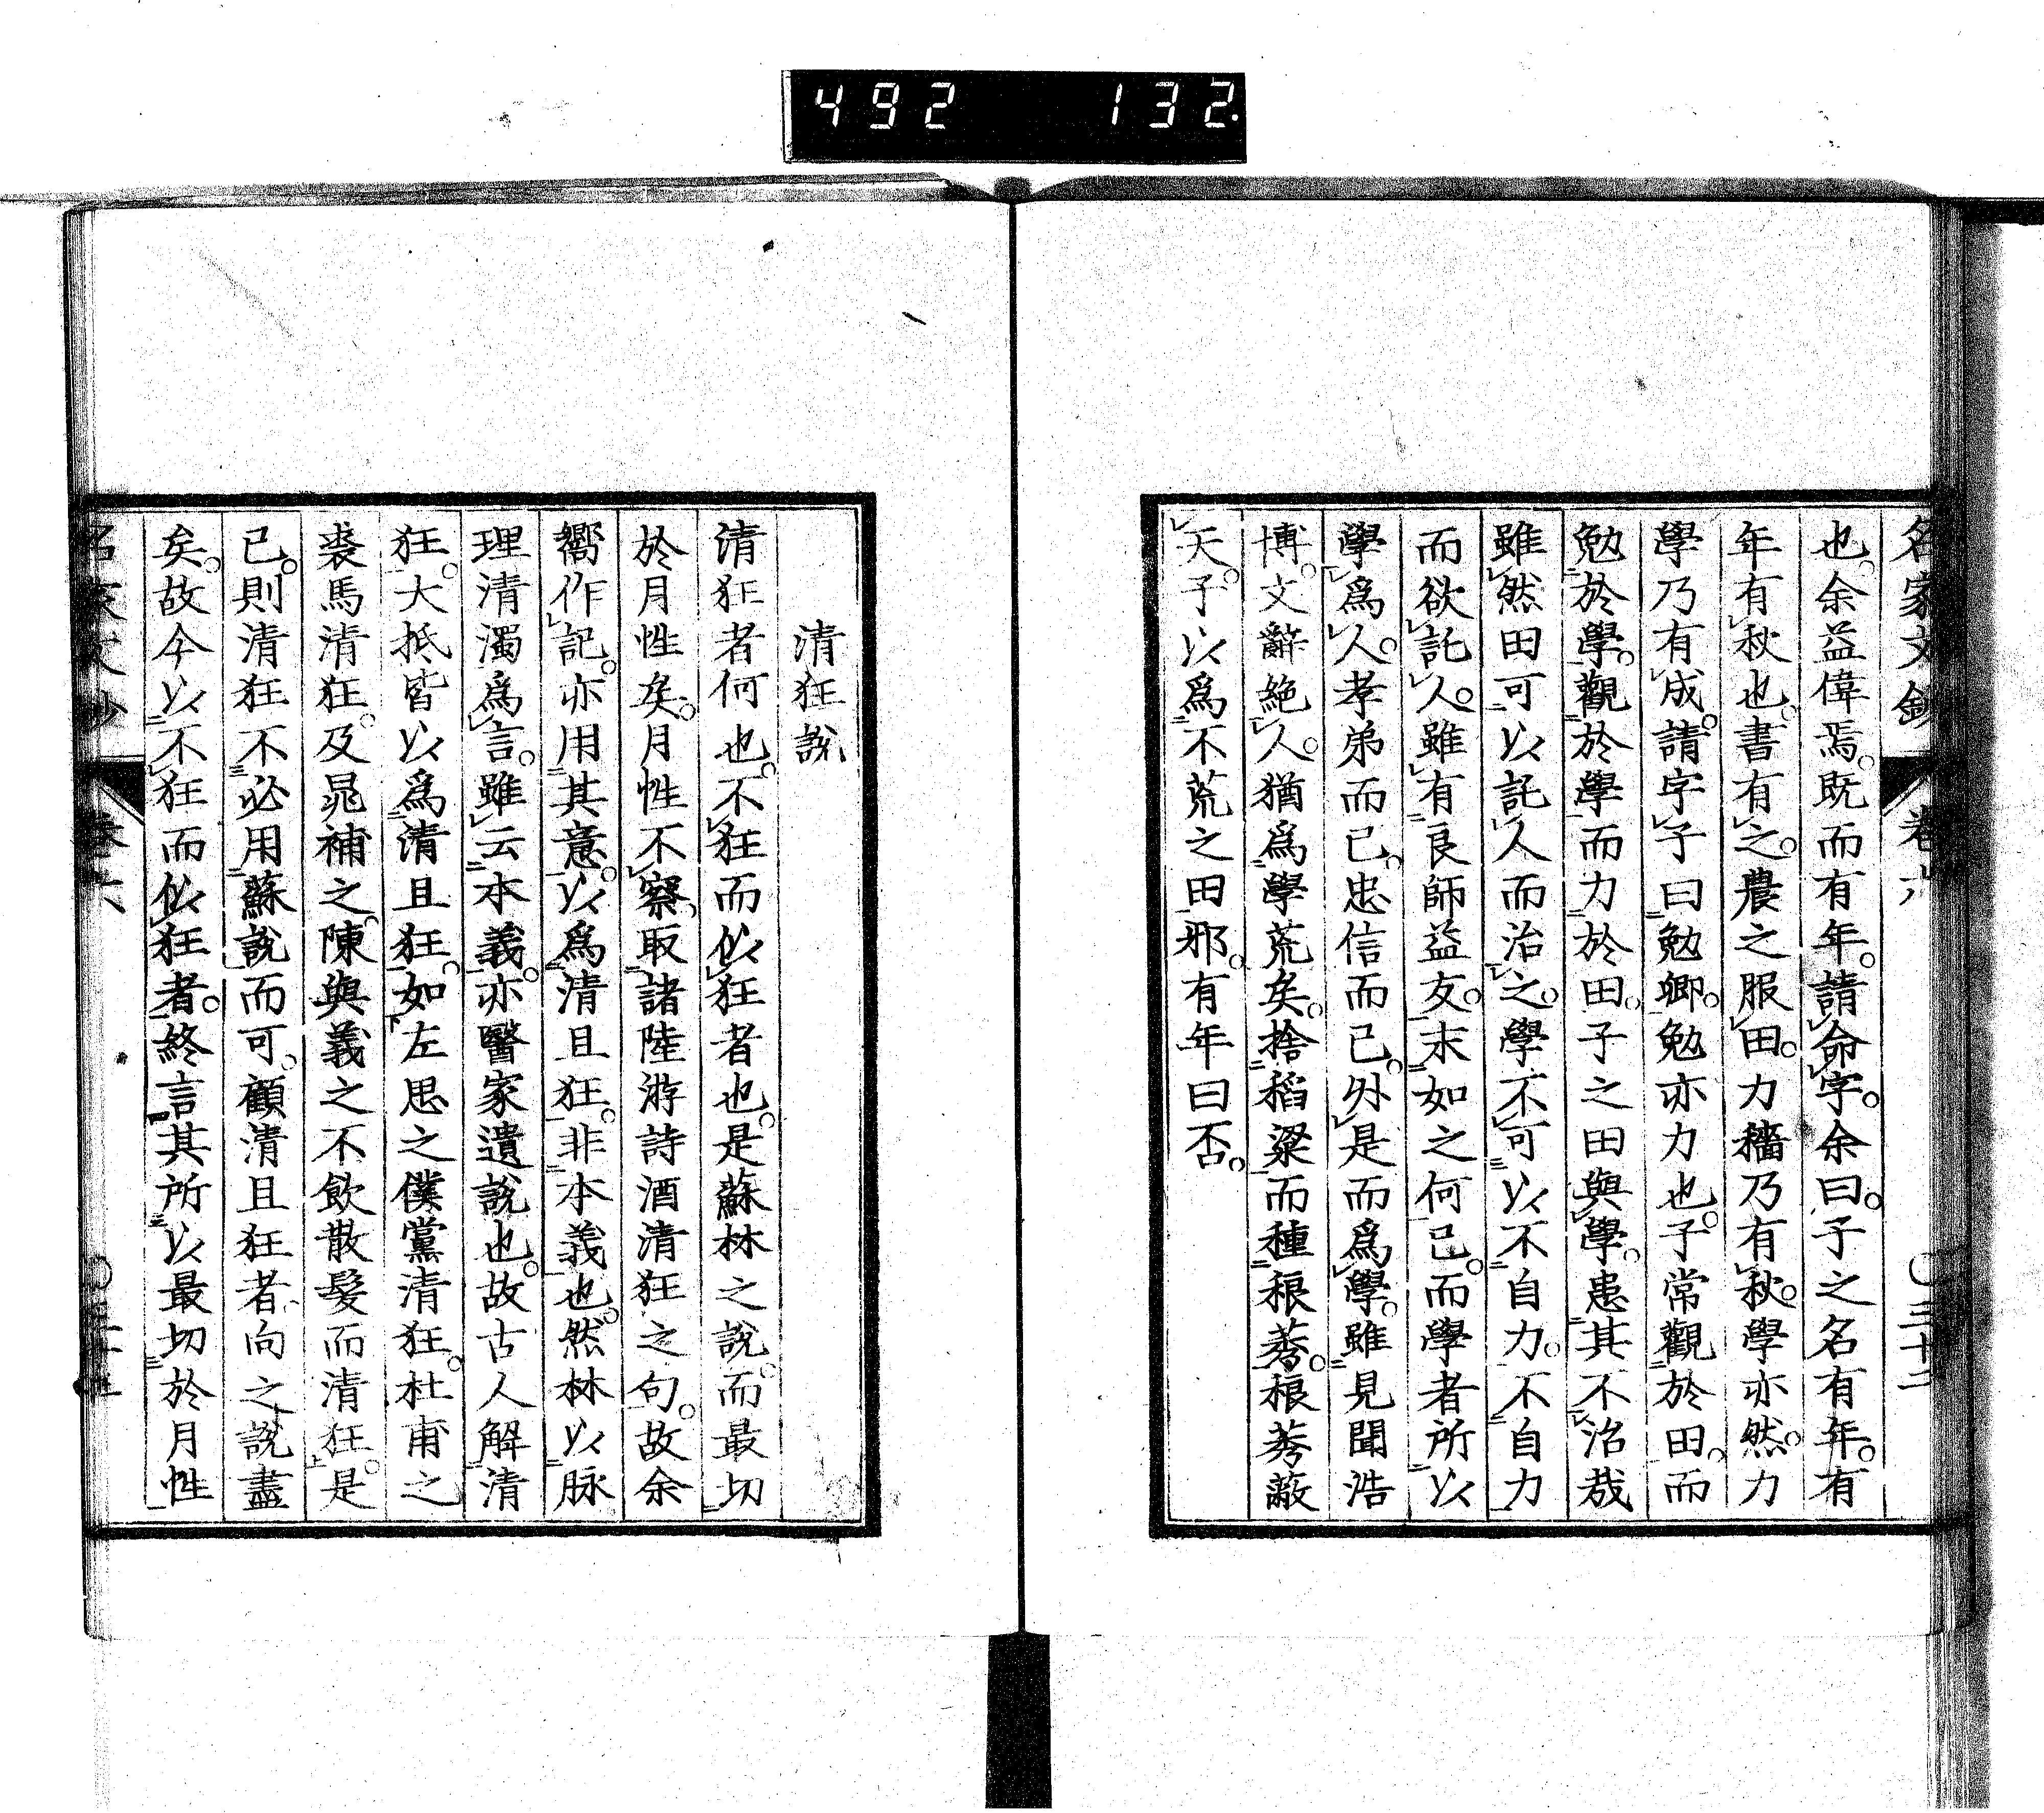 492 132.
名家文鈔 卷六 〇三十二
也。余益偉焉。既而有年。請命字。余曰。子之名有年。有
年有秋也。書有之。農之服田。力穡乃有秋。學亦然。力
學乃有成。請字子曰勉卿。勉亦力也。子常觀於田。而
勉於學。觀於學而力於田。子之田與學。患其不治哉
雖然田可以託人而治之。學不可以不自力。不自力
而欲託人。雖有良師益友。末如之何已。而學者所以
學爲人。孝弟而已。忠信而已。外是而爲學。雖見聞浩
博。文辭絶人。猶爲學荒矣。捨稻粱而種稂莠。稂莠蔽
天。子以爲不荒之田邪。有年曰否。
清狂說
清狂者何也。不狂而似狂者也。是蘇林之說。而最切
於月性矣。月性不察。取諸陸游詩酒清狂之句。故余
嚮作記。亦用其意。以爲清且狂。非本義也。然林以脉
理清濁爲言。雖云本義。亦醫家遺說也。故古人解清
狂。大抵皆以爲清且狂。如左思之僕黨清狂。杜甫之
裘馬清狂。及晁補之。陳與義之不飲散髮而清狂。是
已。則清狂不必用蘇說而可。顧清且狂者。向之說盡
矣。故今以不狂而似狂者。終言其所以最切於月性
名家文鈔 卷六